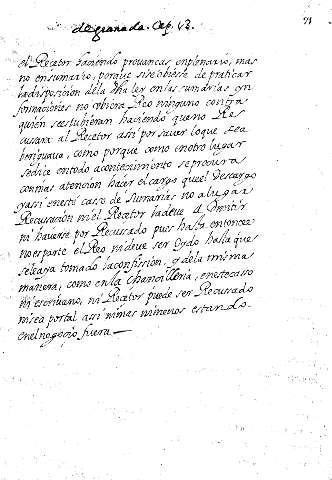 de granada. Cap. 12.
71
el Recetor haciendo provanças enplenario, mas
no ensumario, porque si se obiese de praticar
la disposicion de la dha ley en las sumarias yn
formaciones no ubiera Reo ninguno contra
quien se estubieran haciendo que no Re
cusara al Recetor assi por saver lo que se a
beriguava, como porque como en otro lugar
se dice en todo acontecimiento se procura
con mas atencion hacer el cargo que el Descargo
y assi en este caso de Sumarias no a lugar
Recusacion ni el Recetor la deve admitir
ni haverse por Recusado pues hasta entonces
no es parte el Reo ni deve ser Oydo hasta que
se le aya tomado la confission, y de la misma
manera, como en la Chancilleria, en este caso
ni escrivano, ni Recetor puede ser Recussado
ni sea por tal assi ni mas ni menos estando
en el negocio fuera